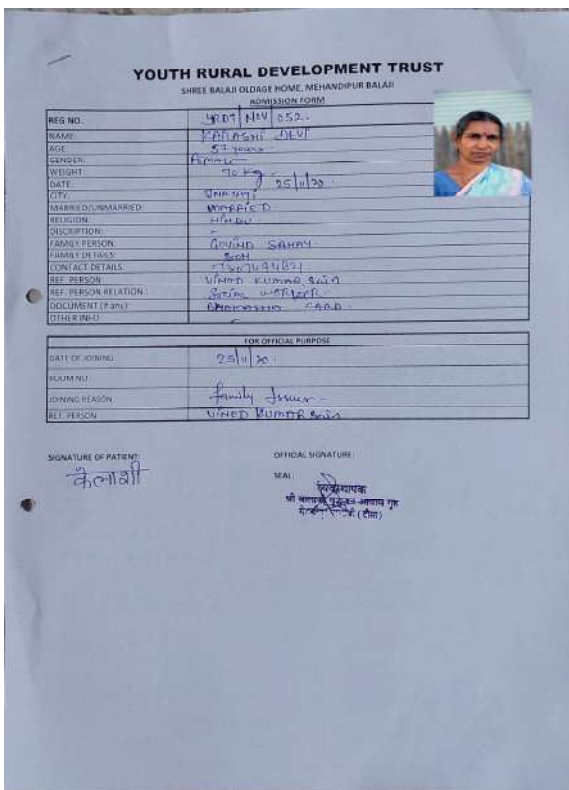 YOUTH RURAL DEVELOPMENT TRUST
SHREE BALAJI OLDAGE HOME, MEHANDIPUR BALAJI
ADMISSION FORM
REG NO. YRDT/NOV/052.
NAME: KAILASHI DEVI
AGE: 57 years
GENDER: Female
WEIGHT 70 kg
DATE: 25/11/20.
CITY:
MARRIED/UNMARRIED: MARRIED
RELIGION: HINDU
DISCRIPTION: -
FAMILY PERSON: GOVIND SAHAY
FAMILY DETAILS: SON
CONTACT DETAILS:
REF. PERSON VINOD KUMAR
REF. PERSON RELATION: Social WORKER.
DOCUMENT (if any): BHAMASHA CARD.
OTHER INFO -
FOR OFFICIAL PURPOSE
DATE OF JOINING 25/11/20.
ROOM NO
JOINING REASON family Issues -
REF. PERSON VINOD KUMAR
SIGNATURE OF PATIENT:
कैलाशी
OFFICIAL SIGNATURE:
SEAL:
व्यवस्थापक
श्री बालाजी आवास गृह
(दौसा)